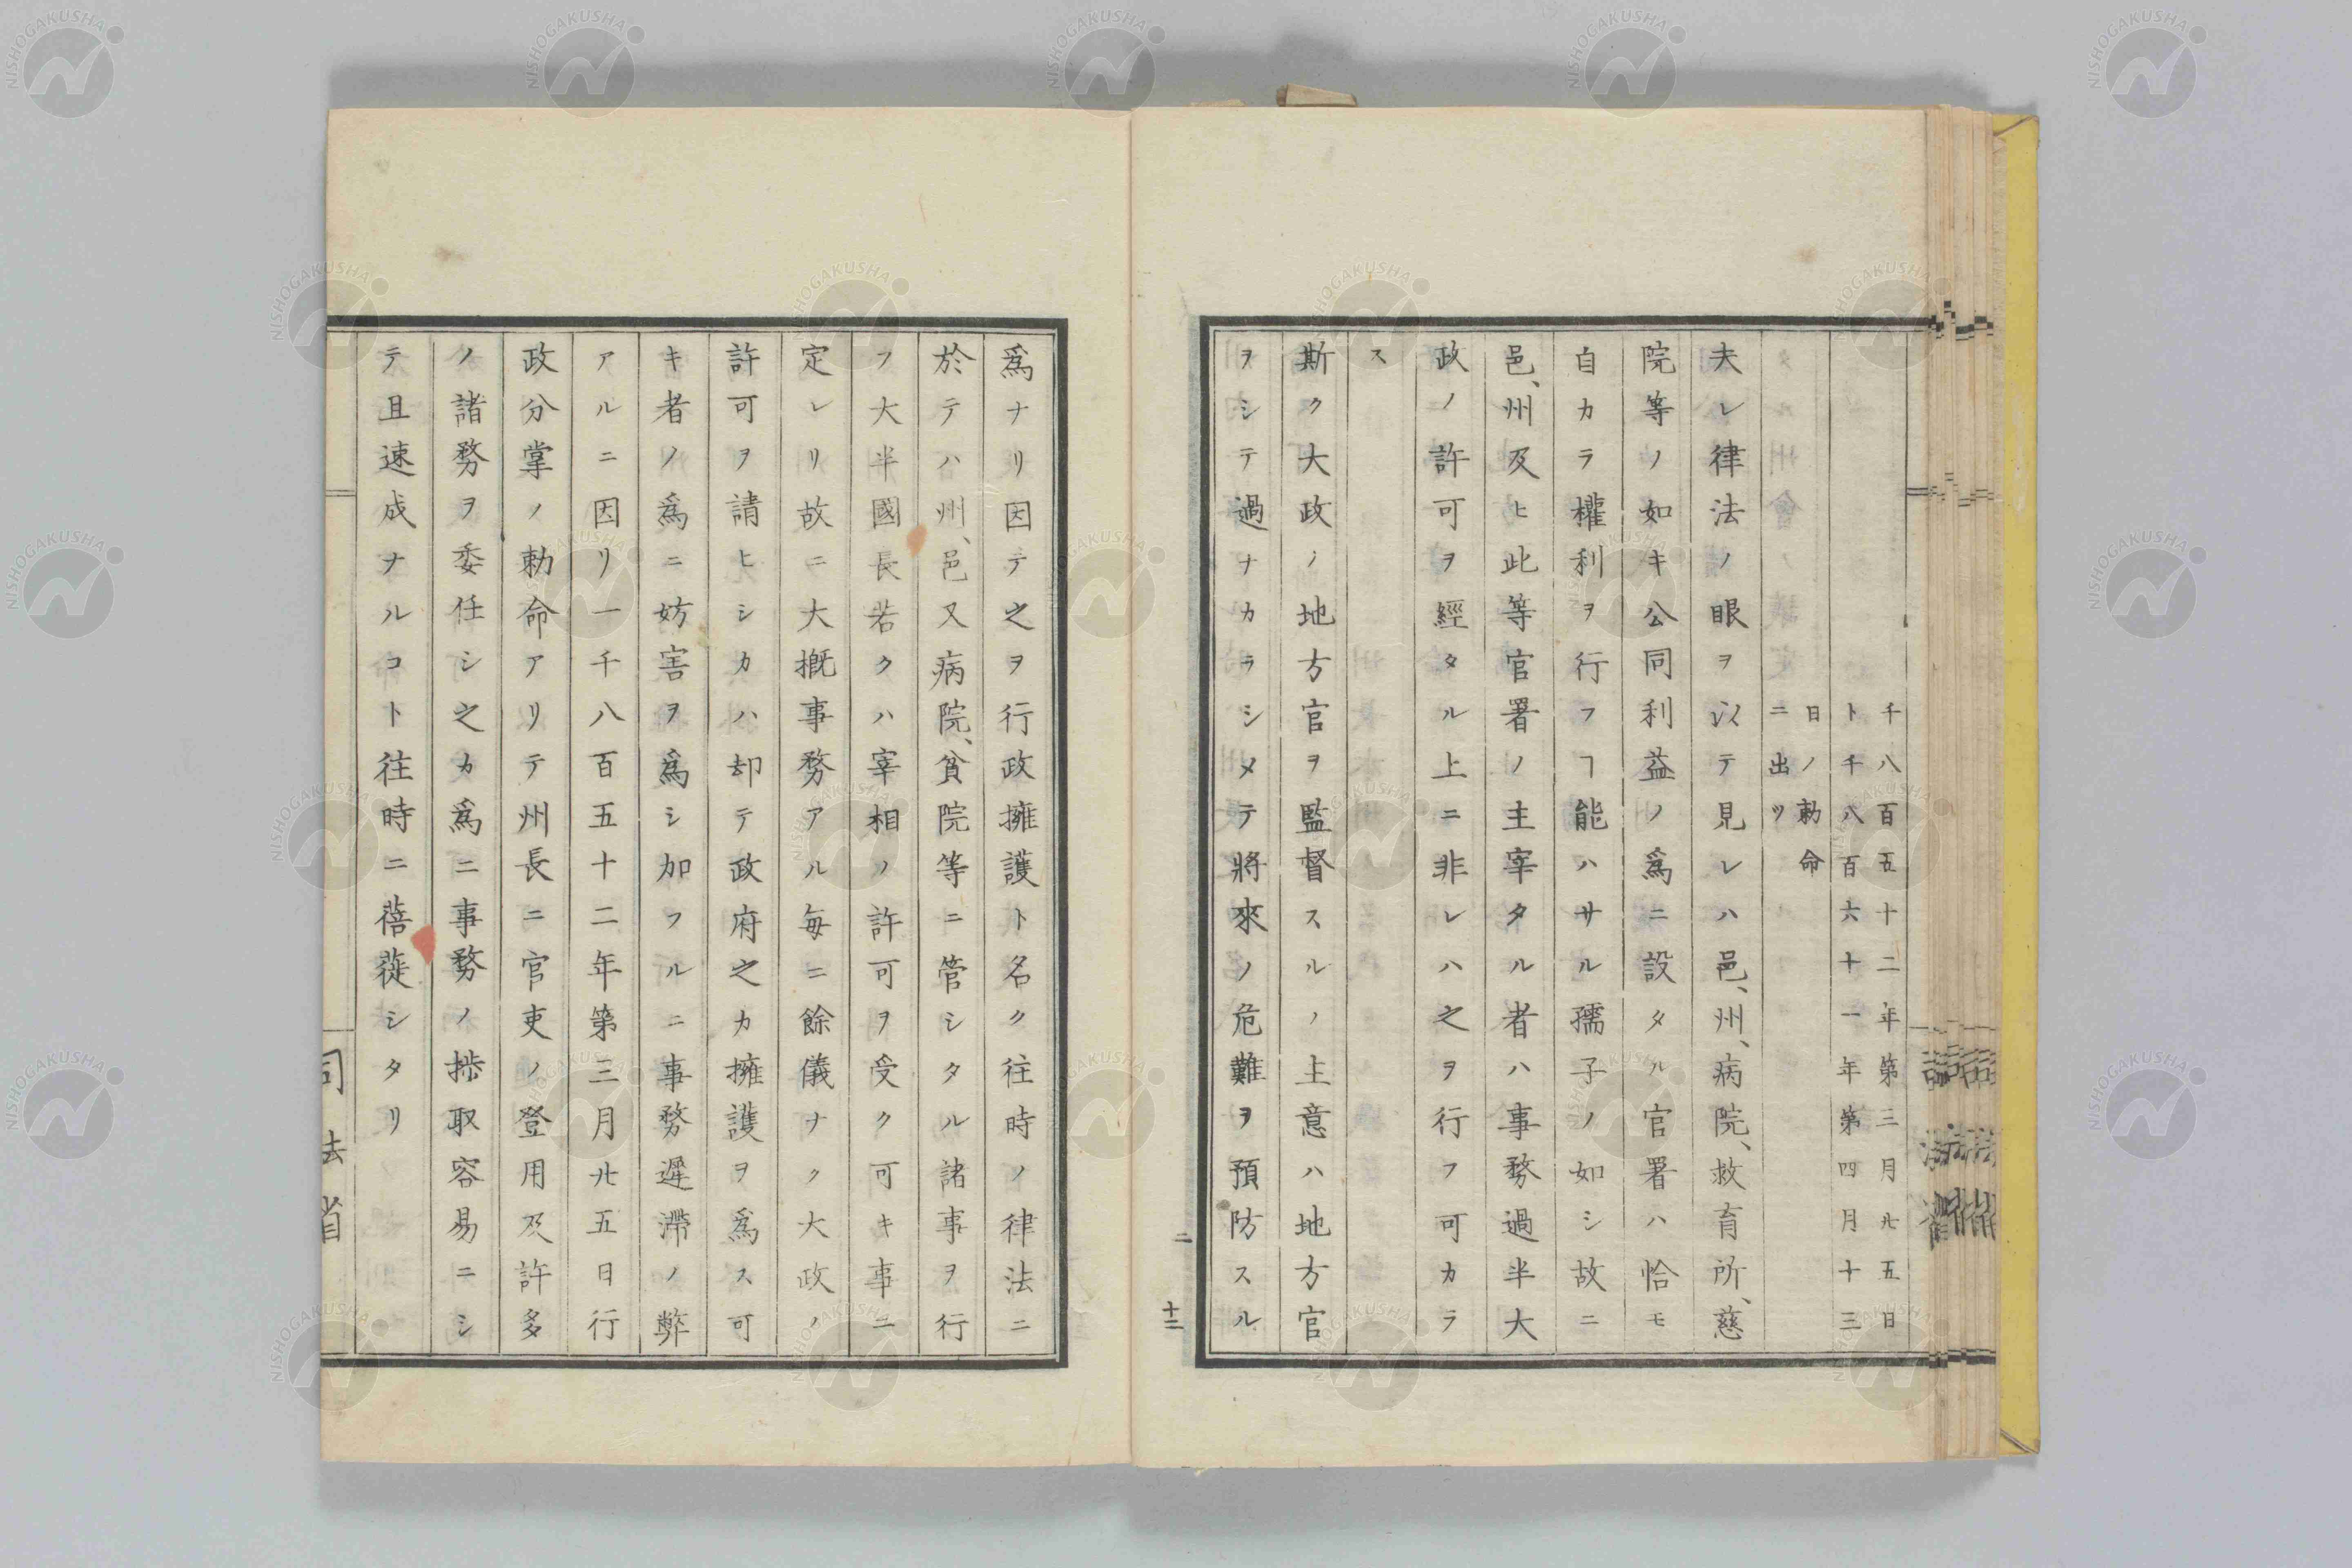 千八百五十二年第三月廿五日
ト千八百六十一年第四月十三
日ノ勅命
ニ出ツ
夫レ律法ノ眼ヲ以テ見レハ邑、州、病院、救育所、慈
院等ノ如キ公同利益ノ爲ニ設タル官署ハ恰モ
自カラ權利ヲ行フヿ能ハサル孺子ノ如シ故ニ
邑、州及ヒ此等官署ノ主宰タル者ハ事務過半大
政ノ許可ヲ經タル上ニ非レハ之ヲ行フ可カラ
ス
斯ク大政ノ地方官ヲ監督スルノ主意ハ地方官
ヲシテ過ナカラシメテ將來ノ危難ヲ預防スル
二
十二
爲ナリ因テ之ヲ行政擁護ト名ク往時ノ律法ニ
於テハ州、邑又病院、貧院等ニ管シタル諸事ヲ行
フ大半國長若クハ宰相ノ許可ヲ受ク可キ事ニ
定レリ故ニ大概事務アル毎ニ餘儀ナク大政ノ
許可ヲ請ヒシカハ却テ政府之カ擁護ヲ爲ス可
キ者ノ爲ニ妨害ヲ爲シ加フルニ事務遲滯ノ弊
アルニ因リ一千八百五十二年第三月廿五日行
政分掌ノ勅命アリテ州長ニ官吏ノ登用及許多
ノ諸務ヲ委任シ之カ爲ニ事務ノ捗取容易ニシ
テ且速成ナルコト往時ニ蓓蓰シタリ
司法省
NISHOGAKUSHA